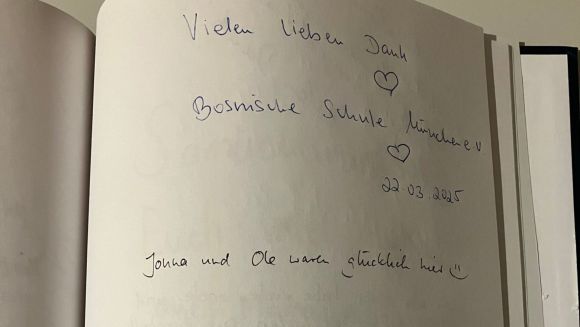 Vielen lieben Dank
♡
Bosnische Schule München e.V
♡
22.03.2025
Jonna und Ole waren glücklich hier ☺